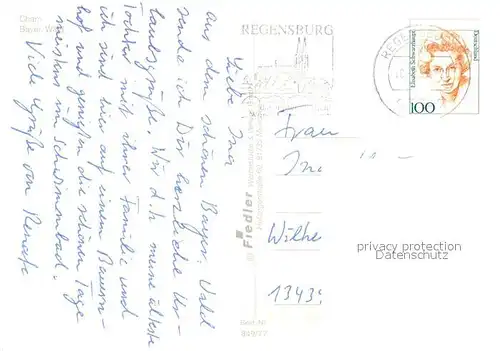 Cham
Bayer. Wa
Liebe Ina
Aus dem schönen Bayer. Wald
sende ich Dir herzliche Ur-
laubsgrüße. Wir d.h. meine älteste
Tochter mit ihrer Familie und
ich sind hier auf einem Bauern-
hof und genießen die schönen Tage
meistens im Schwimmbad.
Viele Grüße von Renate
Fiedler
Best.-Nr.
REGENSBURG
REGENSBURG
Elisabeth Schwarzhaupt
Deutschland
100
Frau
Ina
Wilhe
13439
privacy protection
Datenschutz